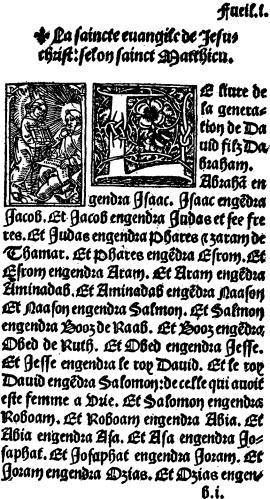 Fueil.i.
✤ La saincte euangile de Jesus
christ: selon sainct Matthieu.
LE liure de
la genera-
tion de Da
uid filz Da
braham.
Abrahā en
gendra Isaac. Isaac engēdra
Jacob. Et Jacob engendra Judas et ses fre
res. Et Judas engendra Phares ⁊ zaram de
Thamar. Et Phares engēdra Esrom. Et
Esrom engendra Aram. Et Aram engēdra
Aminadab. Et Aminadab engēdra Naason
Et Naason engendra Salmon. Et Salmon
engendra Booz de Raab. Et Booz engēdra
Obed de Ruth. Et Obed engendra Jesse.
Et Jesse engendra le roy Dauid. Et le roy
Dauid engēdra Salomon: de celle qui auoit
este femme a Vrie. Et Salomon engendra
Roboam. Et Roboam engendra Abia. Et
Abia engendra Asa. Et Asa engendra Jo-
saphat. Et Josaphat engendra Joram. Et
Joram engendra Ozias. Et Ozias engen-
b.i.